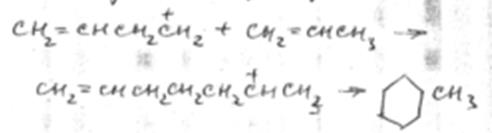 CH₂=CHCH₂C⁺H₂ + CH₂=CHCH₃ →
CH₂=CHCH₂CH₂CH₂C⁺HCH₃ → CH₃